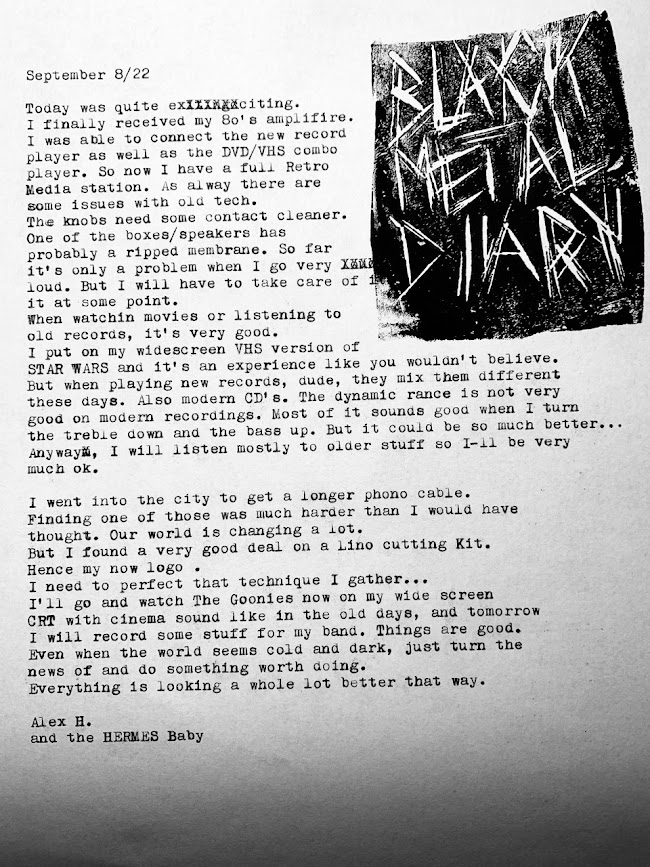 BLACK
METAL
DIARY
September 8/22
Today was quite exciting.
I finally received my 80's amplifire.
I was able to connect the new record
player as well as the DVD/VHS combo
player. So now I have a full Retro
Media station. As alway there are
some issues with old tech.
The knobs need some contact cleaner.
One of the boxes/speakers has
probably a ripped membrane. So far
it's only a problem when I go very
loud. But I will have to take care of i
it at some point.
When watchin movies or listening to
old records, it's very good.
I put on my widescreen VHS version of
STAR WARS and it's an experience like you wouldn't believe.
But when playing new records, dude, they mix them different
these days. Also modern CD's. The dynamic rance is not very
good on modern recordings. Most of it sounds good when I turn
the treble down and the bass up. But it could be so much better...
Anyway, I will listen mostly to older stuff so I-ll be very
much ok.
I went into the city to get a longer phono cable.
Finding one of those was much harder than I would have
thought. Our world is changing a lot.
But I found a very good deal on a Lino cutting Kit.
Hence my now logo .
I need to perfect that technique I gather...
I'll go and watch The Goonies now on my wide screen
CRT with cinema sound like in the old days, and tomorrow
I will record some stuff for my band. Things are good.
Even when the world seems cold and dark, just turn the
news of and do something worth doing.
Everything is looking a whole lot better that way.
Alex H.
and the HERMES Baby